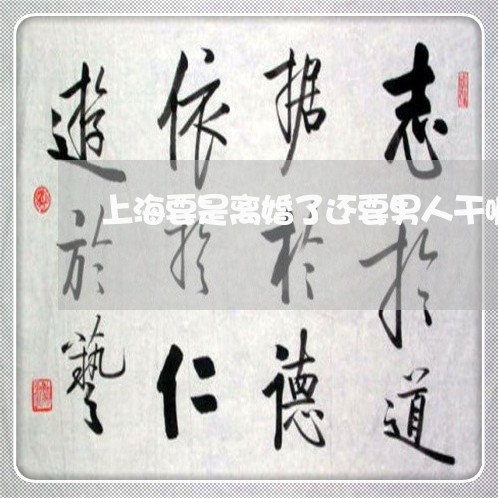 志於道
据於德
依於仁
遊於藝
上海要是离婚了还要男人干